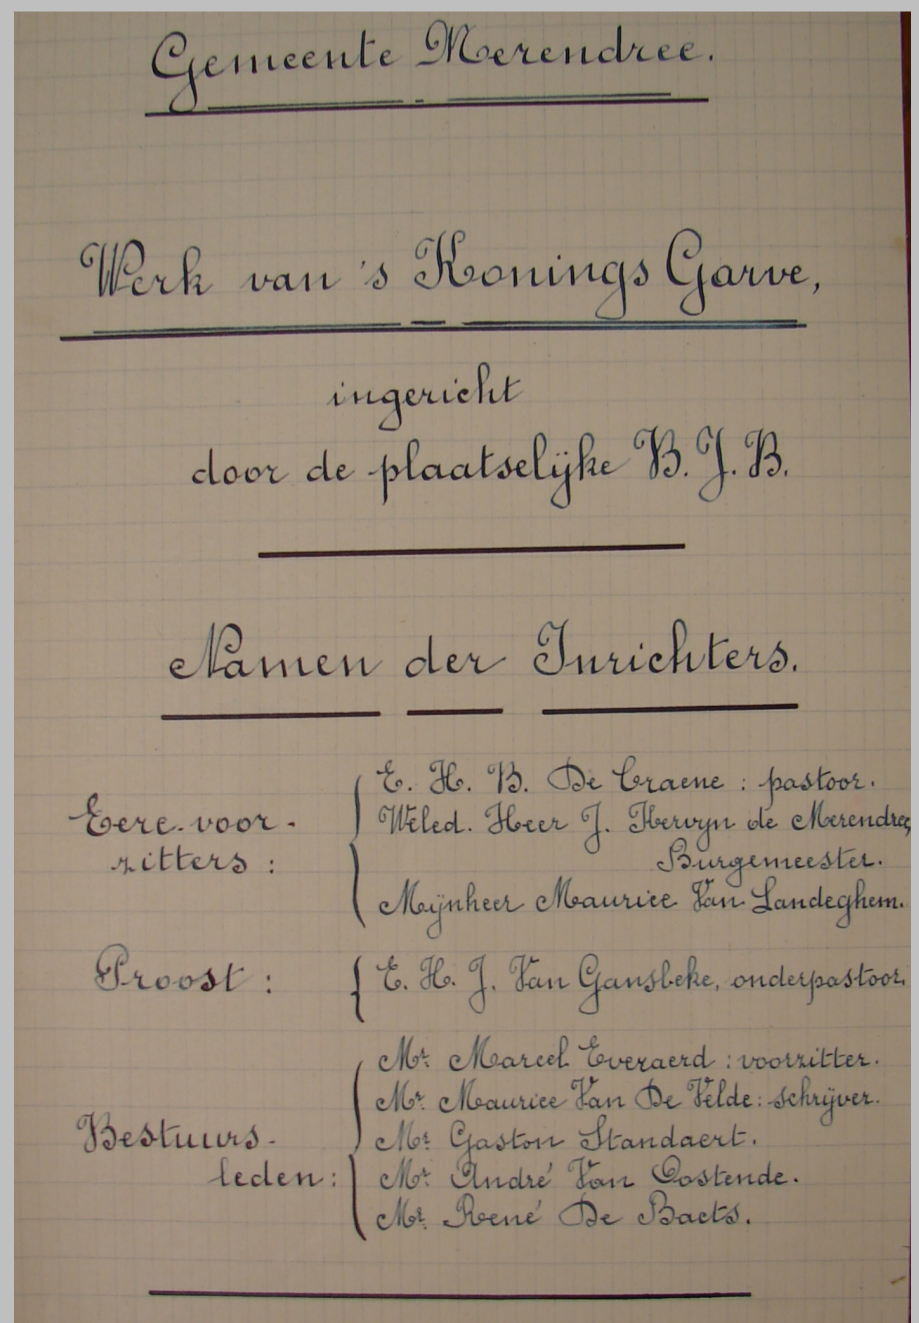 Gemeente Merendree.
Werk van 's Konings Garve,
ingericht
door de plaatselijke B. J. B.
Namen der Inrichters.
Eere-voor-
zitters :
E. H. B. De Craene : pastoor.
Weled. Heer J. Hervyn de Merendree,
Burgemeester.
Mijnheer Maurice Van Landeghem.
Proost :
E. H. J. Van Gansbeke, onderpastoor.
Bestuurs-
leden :
Mr. Marcel Everaerd : voorzitter.
Mr. Maurice Van De Velde : schrijver.
Mr. Gaston Standaert.
Mr. André Van Oostende.
Mr. René De Baets.